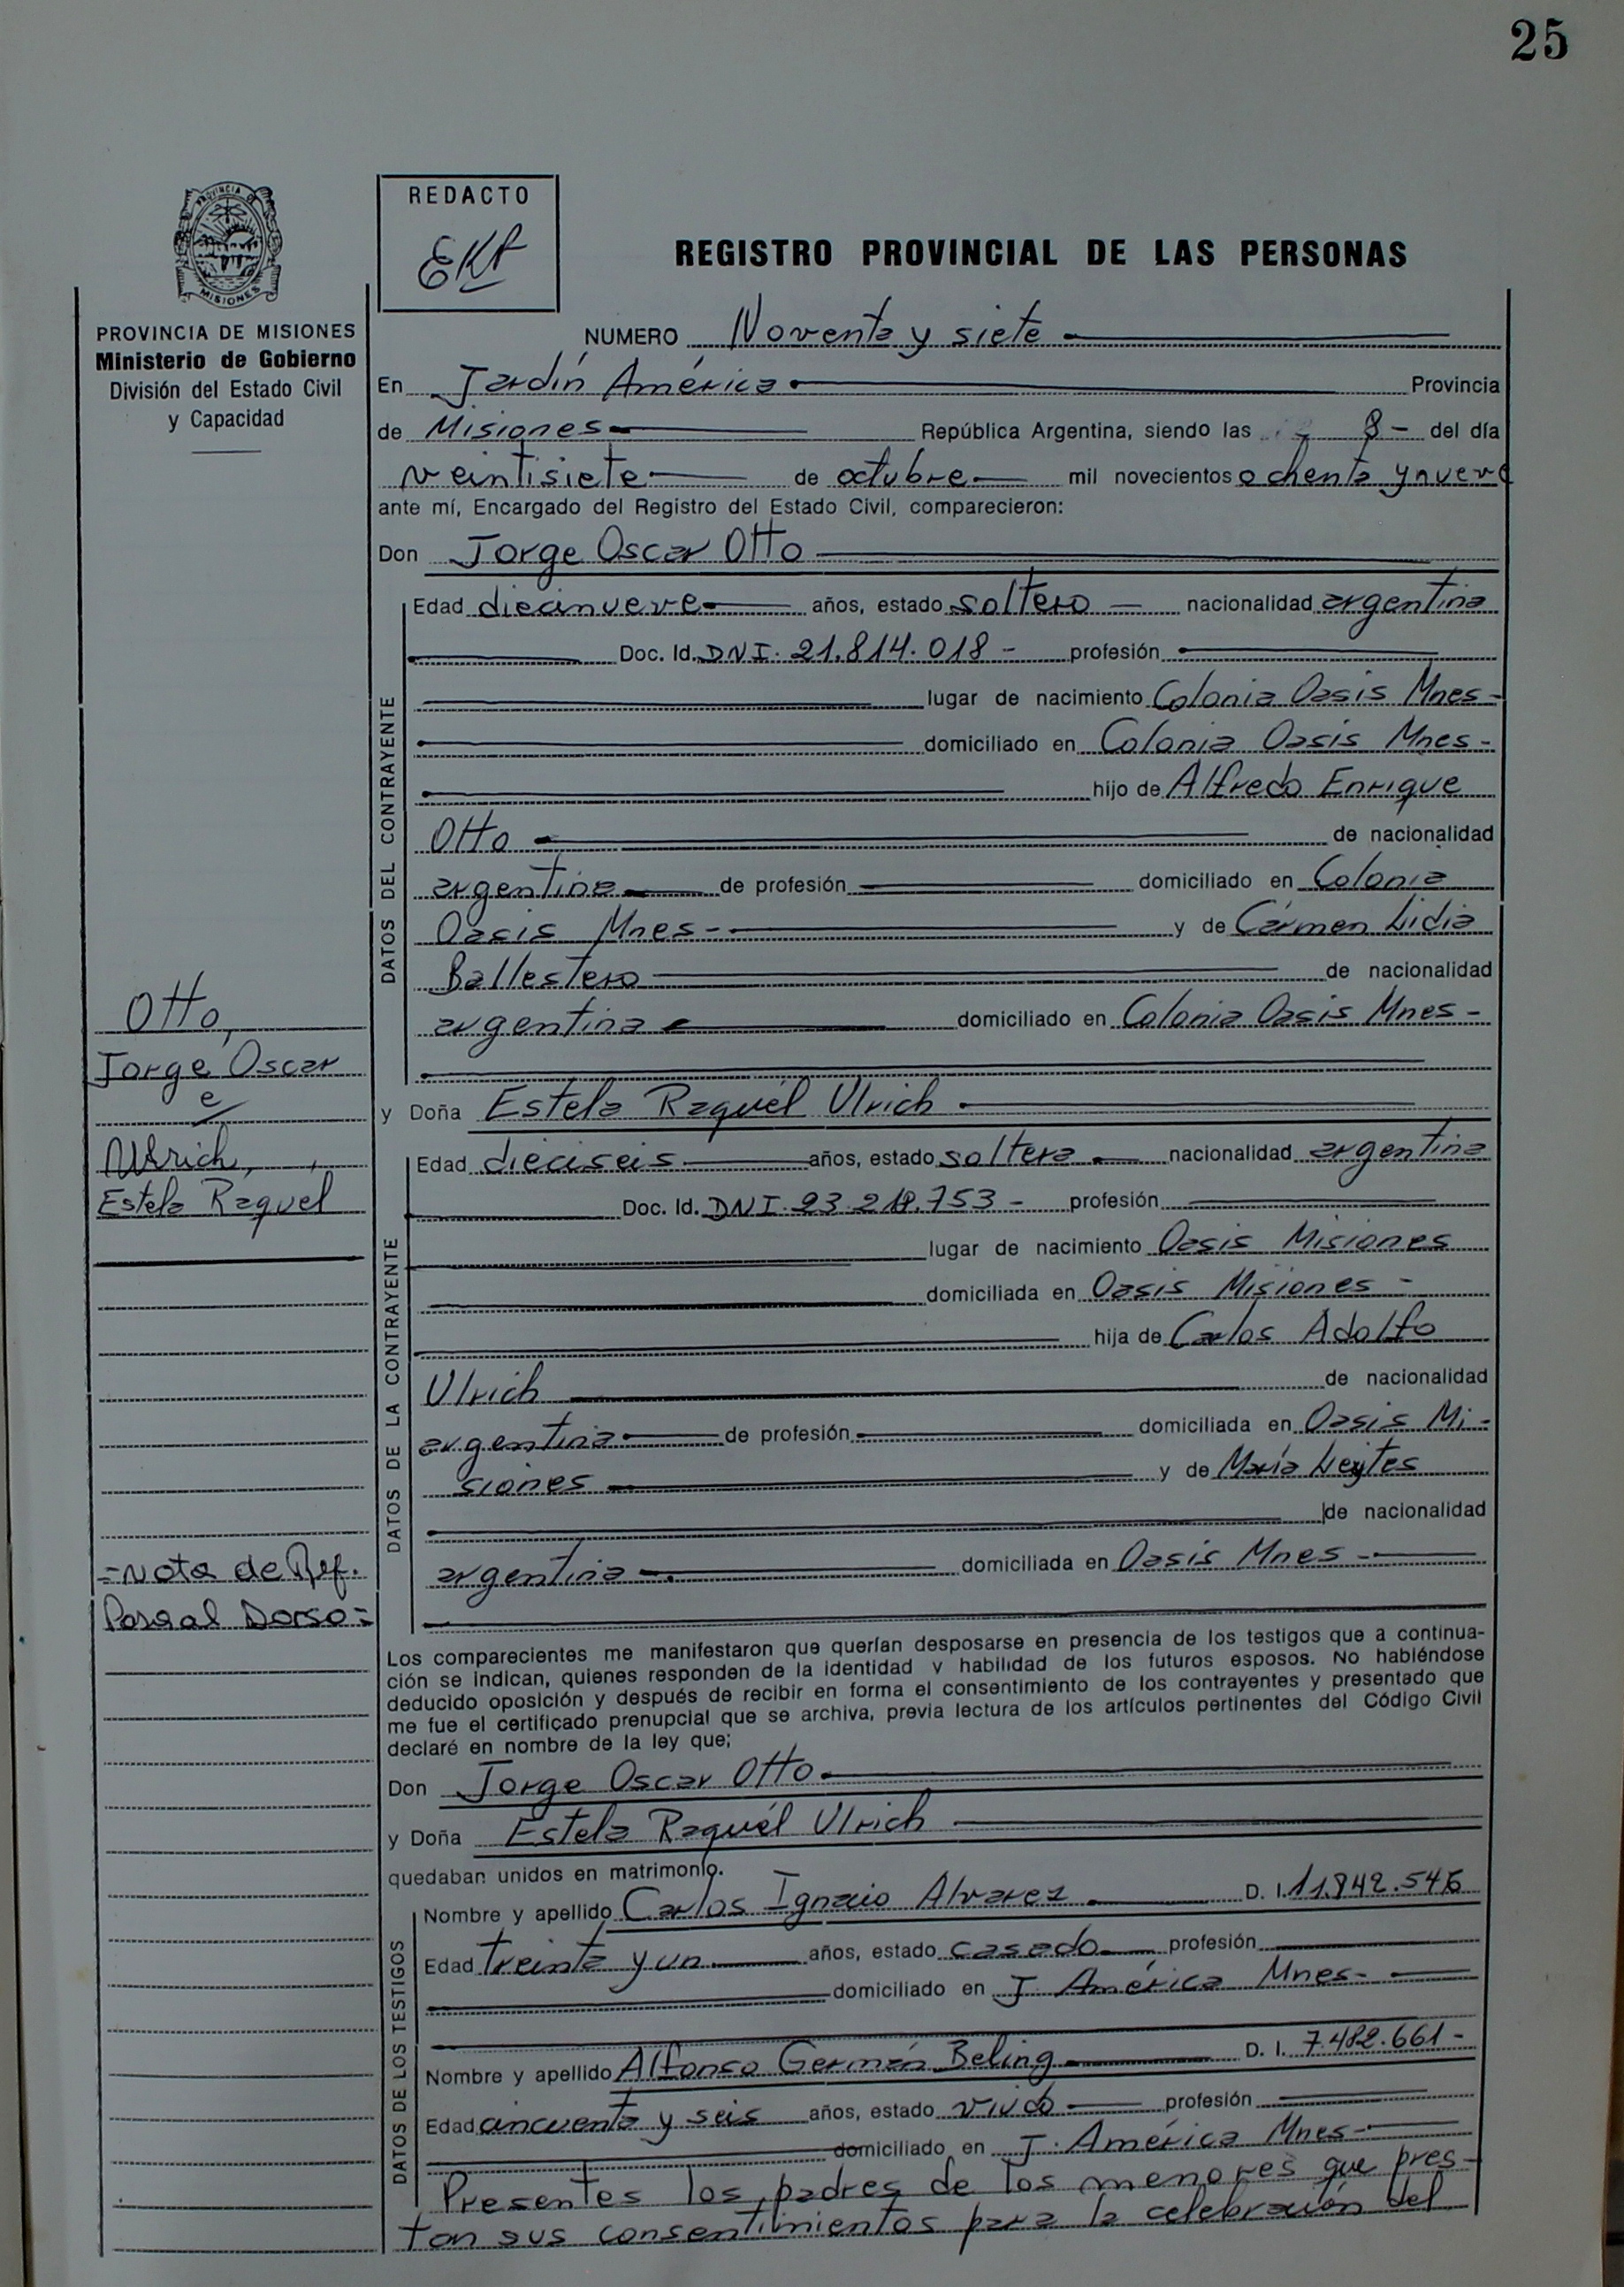 25
PROVINCIA DE
MISIONES
PROVINCIA DE MISIONES
Ministerio de Gobierno
División del Estado Civil
y Capacidad
REDACTO
REGISTRO PROVINCIAL DE LAS PERSONAS
NUMERO Noventa y siete
En Jardín América Provincia
de Misiones República Argentina, siendo las 8 - del día
veintisiete de octubre mil novecientos ochenta y nueve
ante mí, Encargado del Registro del Estado Civil, comparecieron:
Don Jorge Oscar Otto
DATOS DEL CONTRAYENTE
Edad diecinueve años, estado soltero nacionalidad argentina
Doc. Id. DNI. 21.814.018 - profesión
lugar de nacimiento Colonia Oasis Mnes-
domiciliado en Colonia Oasis Mnes-
hijo de Alfredo Enrique
Otto de nacionalidad
argentina de profesión domiciliado en Colonia
Oasis Mnes- y de Carmen Lidia
Ballestero de nacionalidad
argentina domiciliado en Colonia Oasis Mnes-
Otto,
Jorge Oscar
e
Ulrich,
Estela Raquel
y Doña Estela Raquél Ulrich
DATOS DE LA CONTRAYENTE
Edad dieciseis años, estado soltera nacionalidad argentina
Doc. Id. DNI. profesión
lugar de nacimiento Oasis Misiones
domiciliada en Oasis Misiones -
hija de Carlos Adolfo
Ulrich de nacionalidad
argentina de profesión domiciliada en Oasis Mi-
siones y de María
de nacionalidad
argentina domiciliada en Oasis Mnes-
=Nota de Ref.
al Dorso=
Los comparecientes me manifestaron que querían desposarse en presencia de los testigos que a continua-
ción se indican, quienes responden de la identidad y habilidad de los futuros esposos. No habiéndose
deducido oposición y después de recibir en forma el consentimiento de los contrayentes y presentado que
me fue el certificado prenupcial que se archiva, previa lectura de los artículos pertinentes del Código Civil
declaré en nombre de la ley que;
Don Jorge Oscar Otto
y Doña Estela Raquél Ulrich
quedaban unidos en matrimonio.
DATOS DE LOS TESTIGOS
Nombre y apellido Carlos Ignacio Alvarez D. I.
Edad treinta y un años, estado casado profesión
domiciliado en J. América Mnes-
Nombre y apellido Alfonso Germán Beling D. I. 7.482.661-
Edad cincuenta y seis años, estado viudo profesión
domiciliado en J. América Mnes-
Presentes los padres de los menores que pres-
tan sus consentimientos para la celebración del